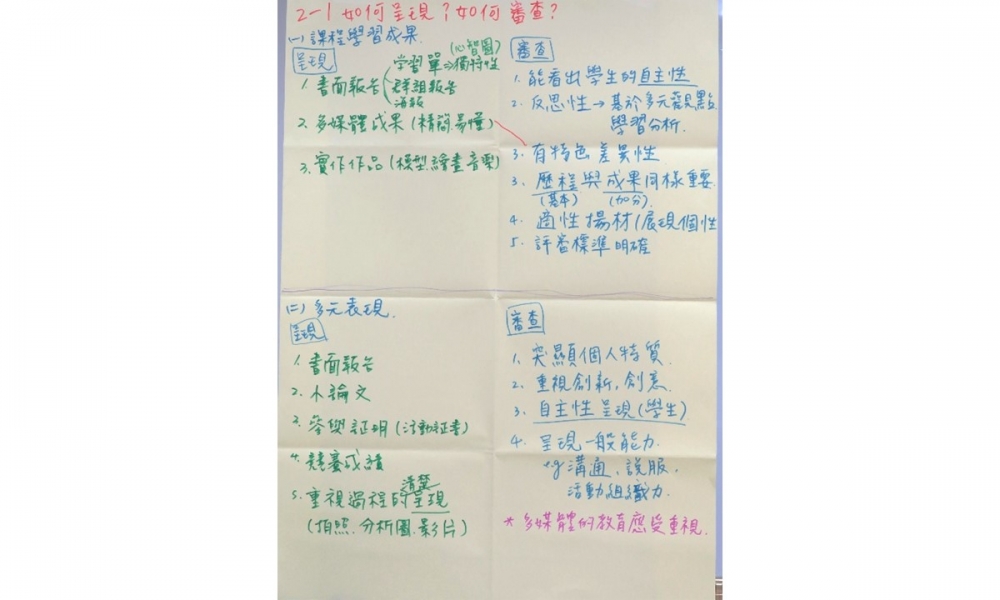 2-1 如何呈現？如何審查？
(一) 課程學習成果
呈現
1. 書面報告
學習單⇒獨特性
(心智圖)
群組報告
海報
2. 多媒體成果(精簡.易懂)
3. 實作作品(模型.繪畫.音樂)
審查
1. 能看出學生的自主性
2. 反思性→基於多元觀點
學習分析.
3. 有特色差異性
3. 歷程與成果同樣重要.
(基本) (加分)
4. 適性揚材(展現個性
5. 評審標準明確
(二) 多元表現.
呈現
1. 書面報告
2. 小論文
3. 參與証明(活動証書)
4. 競賽成績
5. 重視過程的呈現
清楚
(拍照.分析圖.影片)
審查
1. 突顯個人特質.
2. 重視創新,創意.
3. 自主性呈現(學生)
4. 呈現一般能力.
eg溝通、說服,
活動組織力.
* 多媒體的教育應受重視.